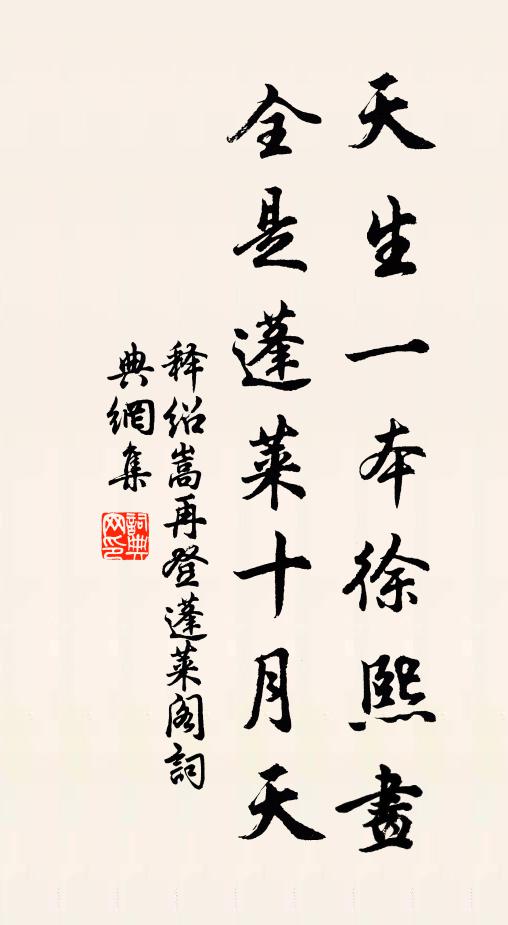 天生一本徐熙畫
全是蓬萊十月天
釋紹嵩再登蓬萊阁詞
典網集
詞典
网印